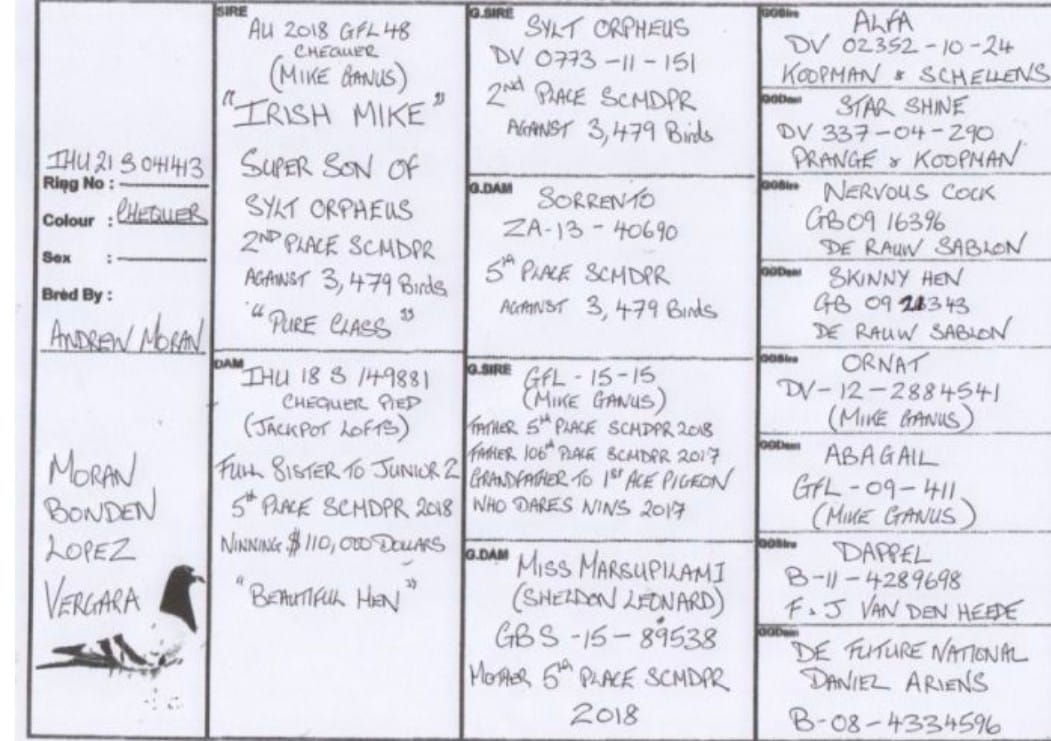 IHU 21 S 041413
Ring No :
Colour : CHEQUER
Sex :
Bred By :
ANDREW MORAN
MORAN
BONDEN
LOPEZ
VERGARA
SIRE
AU 2018 GFL 48
CHEQUER
(MIKE GANUS)
"IRISH MIKE"
SUPER SON OF
SYLT ORPHEUS
2ND PLACE SCMDPR
AGAINST 3,479 Birds
"PURE CLASS"
DAM
IHU 18 S 149881
CHEQUER PIED
(JACKPOT LOFTS)
FULL SISTER TO JUNIOR 2
5th PLACE SCMDPR 2018
WINNING $110,000 DOLLARS
"BEAUTIFUL HEN"
G.SIRE
SYLT ORPHEUS
DV 0773-11-151
2nd PLACE SCMDPR
AGAINST 3,479 Birds
G.DAM
SORRENTO
ZA-13-40690
5th PLACE SCMDPR
AGAINST 3,479 Birds
G.SIRE
GFL-15-15
(MIKE GANUS)
FATHER 5th PLACE SCMDPR 2018
FATHER 106th PLACE SCMDPR 2017
GRANDFATHER TO 1st ACE PIGEON
WHO DARES WINS 2017
G.DAM
MISS MARSUPILAMI
(SHELDON LEONARD)
GBS-15-89538
MOTHER 5th PLACE SCMDPR
2018
GGSire
ALFA
DV 02352-10-24
KOOPMAN & SCHELLENS
GGDam
STAR SHINE
DV 337-04-290
PRANGE & KOOPMAN
GGSire
NERVOUS COCK
GB09 16396
DE RAUW SABLON
GGDam
SKINNY HEN
GB 09 21343
DE RAUW SABLON
GGSire
ORNAT
DV-12-2884541
(MIKE GANUS)
GGDam
ABAGAIL
GFL-09-411
(MIKE GANUS)
GGSire
DAPPEL
B-11-4289698
F & J VAN DEN HEEDE
GGDam
DE FUTURE NATIONAL
DANIEL ARIENS
B-08-4334596